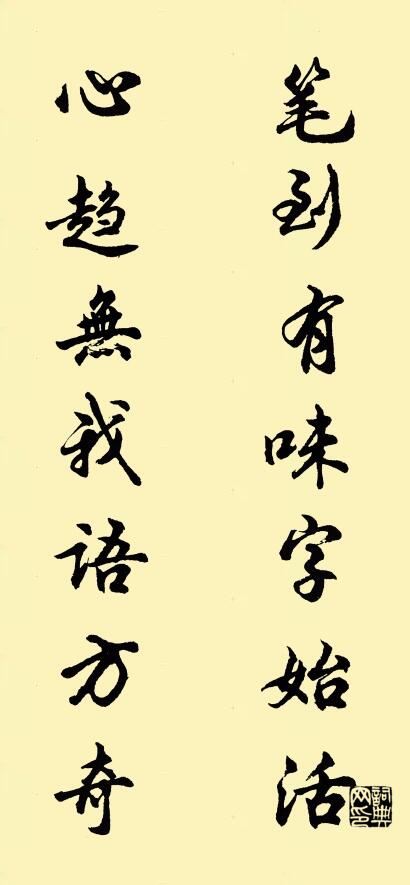 笔到有味字始活
心趋無我語方奇
詞典网印